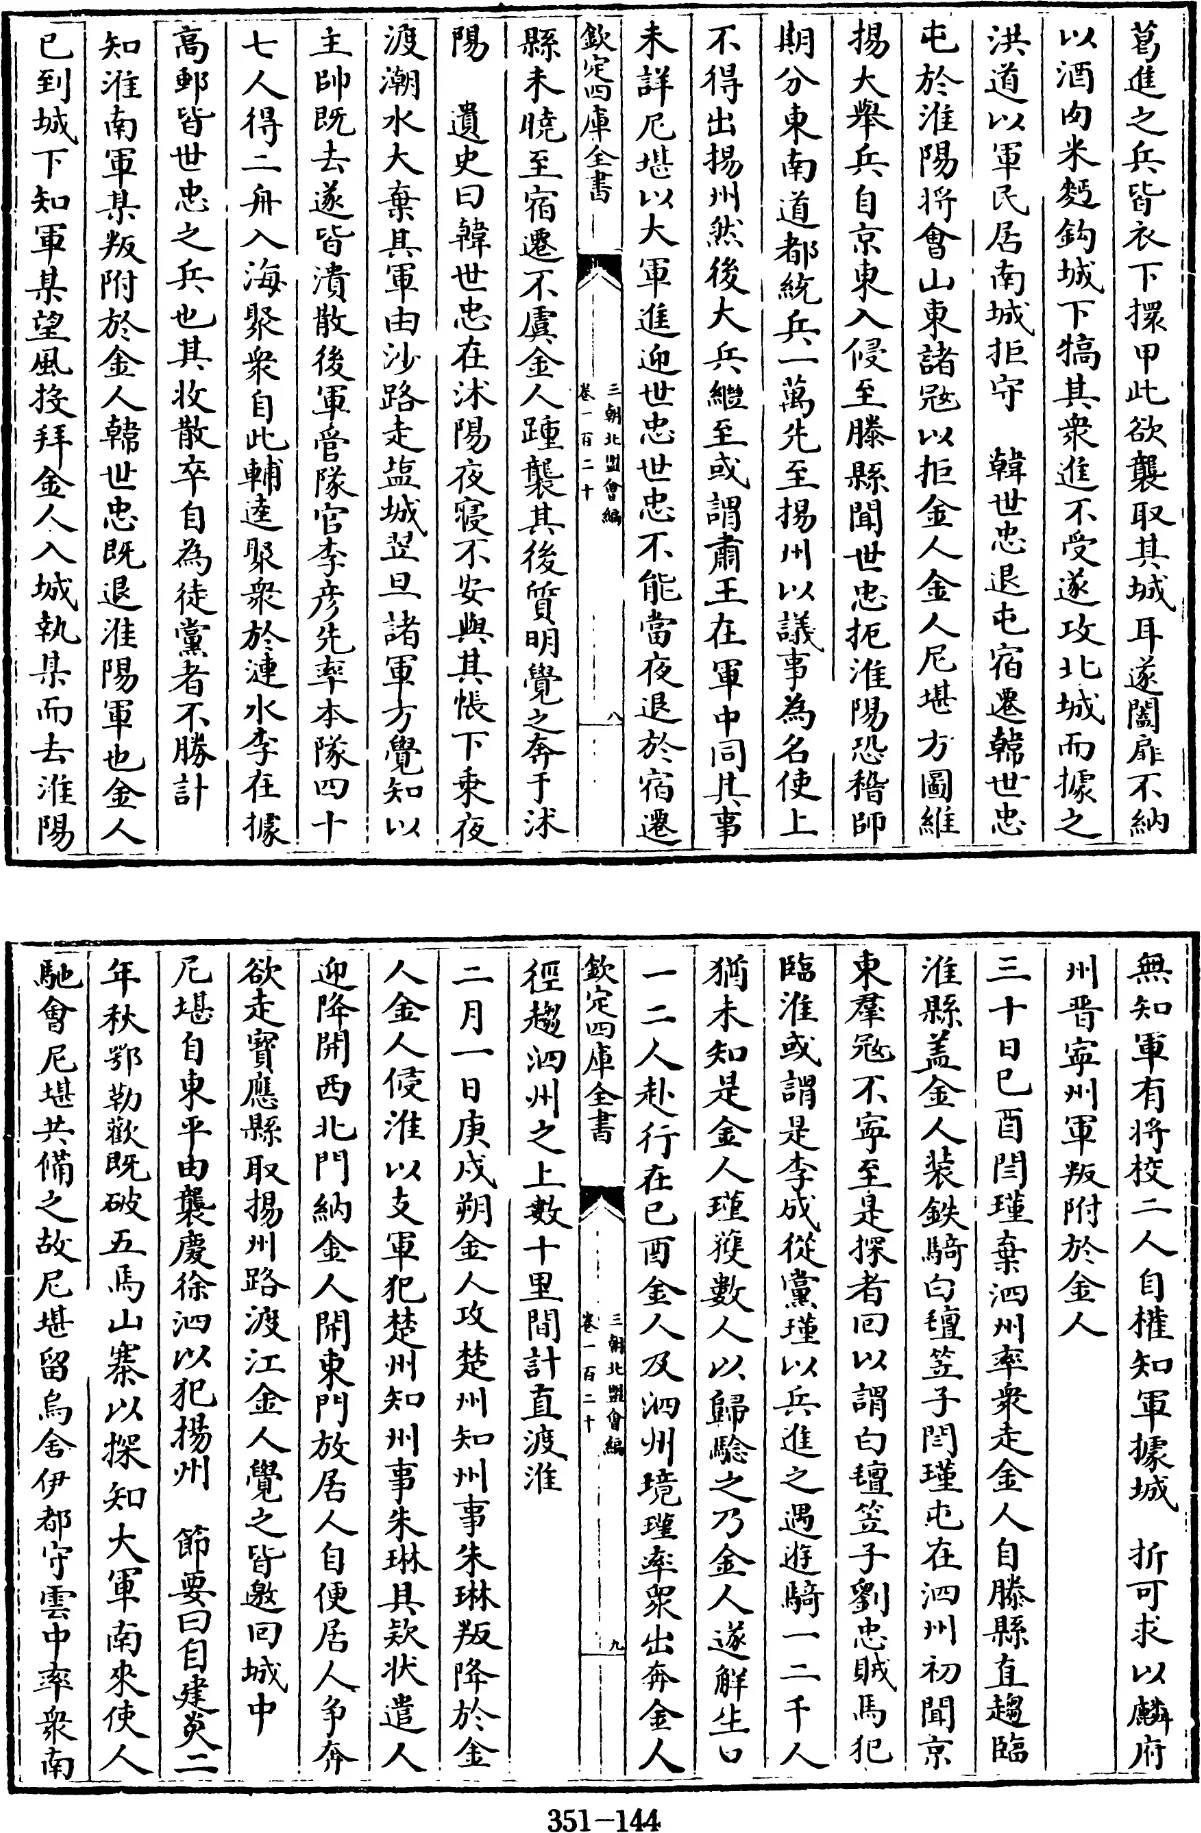 葛進之兵皆衣下擐甲此欲襲取其城耳遂闔扉不納
以酒肉米麪鈎城下犒其衆進不受遂攻北城而據之
洪道以軍民居南城拒守　韓世忠退屯宿遷韓世忠
屯於淮陽將㑹山東諸冦以拒金人金人尼堪方圖維
揚大舉兵自京東入侵至滕縣聞世忠扼淮陽恐稽師
期分東南道都統兵一萬先至揚州以議事為名使上
不得出揚州然後大兵繼至或謂肅王在軍中同其事
未詳尼堪以大軍進迎世忠世忠不能當夜退於宿遷
欽定四庫全書
三朝北盟㑹編
卷一百二十
八
縣未曉至宿遷不虞金人踵襲其後質明覺之奔于沭
陽　遺史曰韓世忠在沭陽夜寢不安與其帳下乗夜
渡潮水大棄其軍由沙路走盐城翌旦諸軍方覺知以
主帥既去遂皆潰散後軍管隊官李彦先率本隊四十
七人得二舟入海聚衆自此輔逵聚衆於漣水李在據
高郵皆世忠之兵也其收散卒自為徒黨者不勝計
知淮南軍某叛附於金人韓世忠既退淮陽軍也金人
已到城下知軍某望風投拜金人入城執某而去淮陽
無知軍有將校二人自權知軍據城　折可求以麟府
州晋寧州軍叛附於金人
三十日己酉閆瑾棄泗州率衆走金人自滕縣直趨臨
淮縣盖金人裝鉄騎白氊笠子閆瑾屯在泗州初聞京
東羣冦不寧至是探者回以謂白氊笠子劉忠賊馬犯
臨淮或謂是李成從黨瑾以兵進之遇遊騎一二千人
猶未知是金人瑾獲數人以歸驗之乃金人遂解生口
一二人赴行在己酉金人及泗州境瑾率衆出奔金人
欽定四庫全書
三朝北盟㑹編
卷一百二十
九
徑趨泗州之上數十里間計直渡淮
二月一日庚戍朔金人攻楚州知州事朱琳叛降於金
人金人侵淮以支軍犯楚州知州事朱琳具欵状遣人
迎降開西北門納金人開東門放居人自便居人争奔
欲走寳應縣取揚州路渡江金人覺之皆邀回城中
尼堪自東平由襲慶徐泗以犯揚州　節要曰自建炎二
年秋鄂勒歡既破五馬山寨以探知大軍南來使人
馳會尼堪共備之故尼堪留烏舍伊都守雲中率衆南
351-144